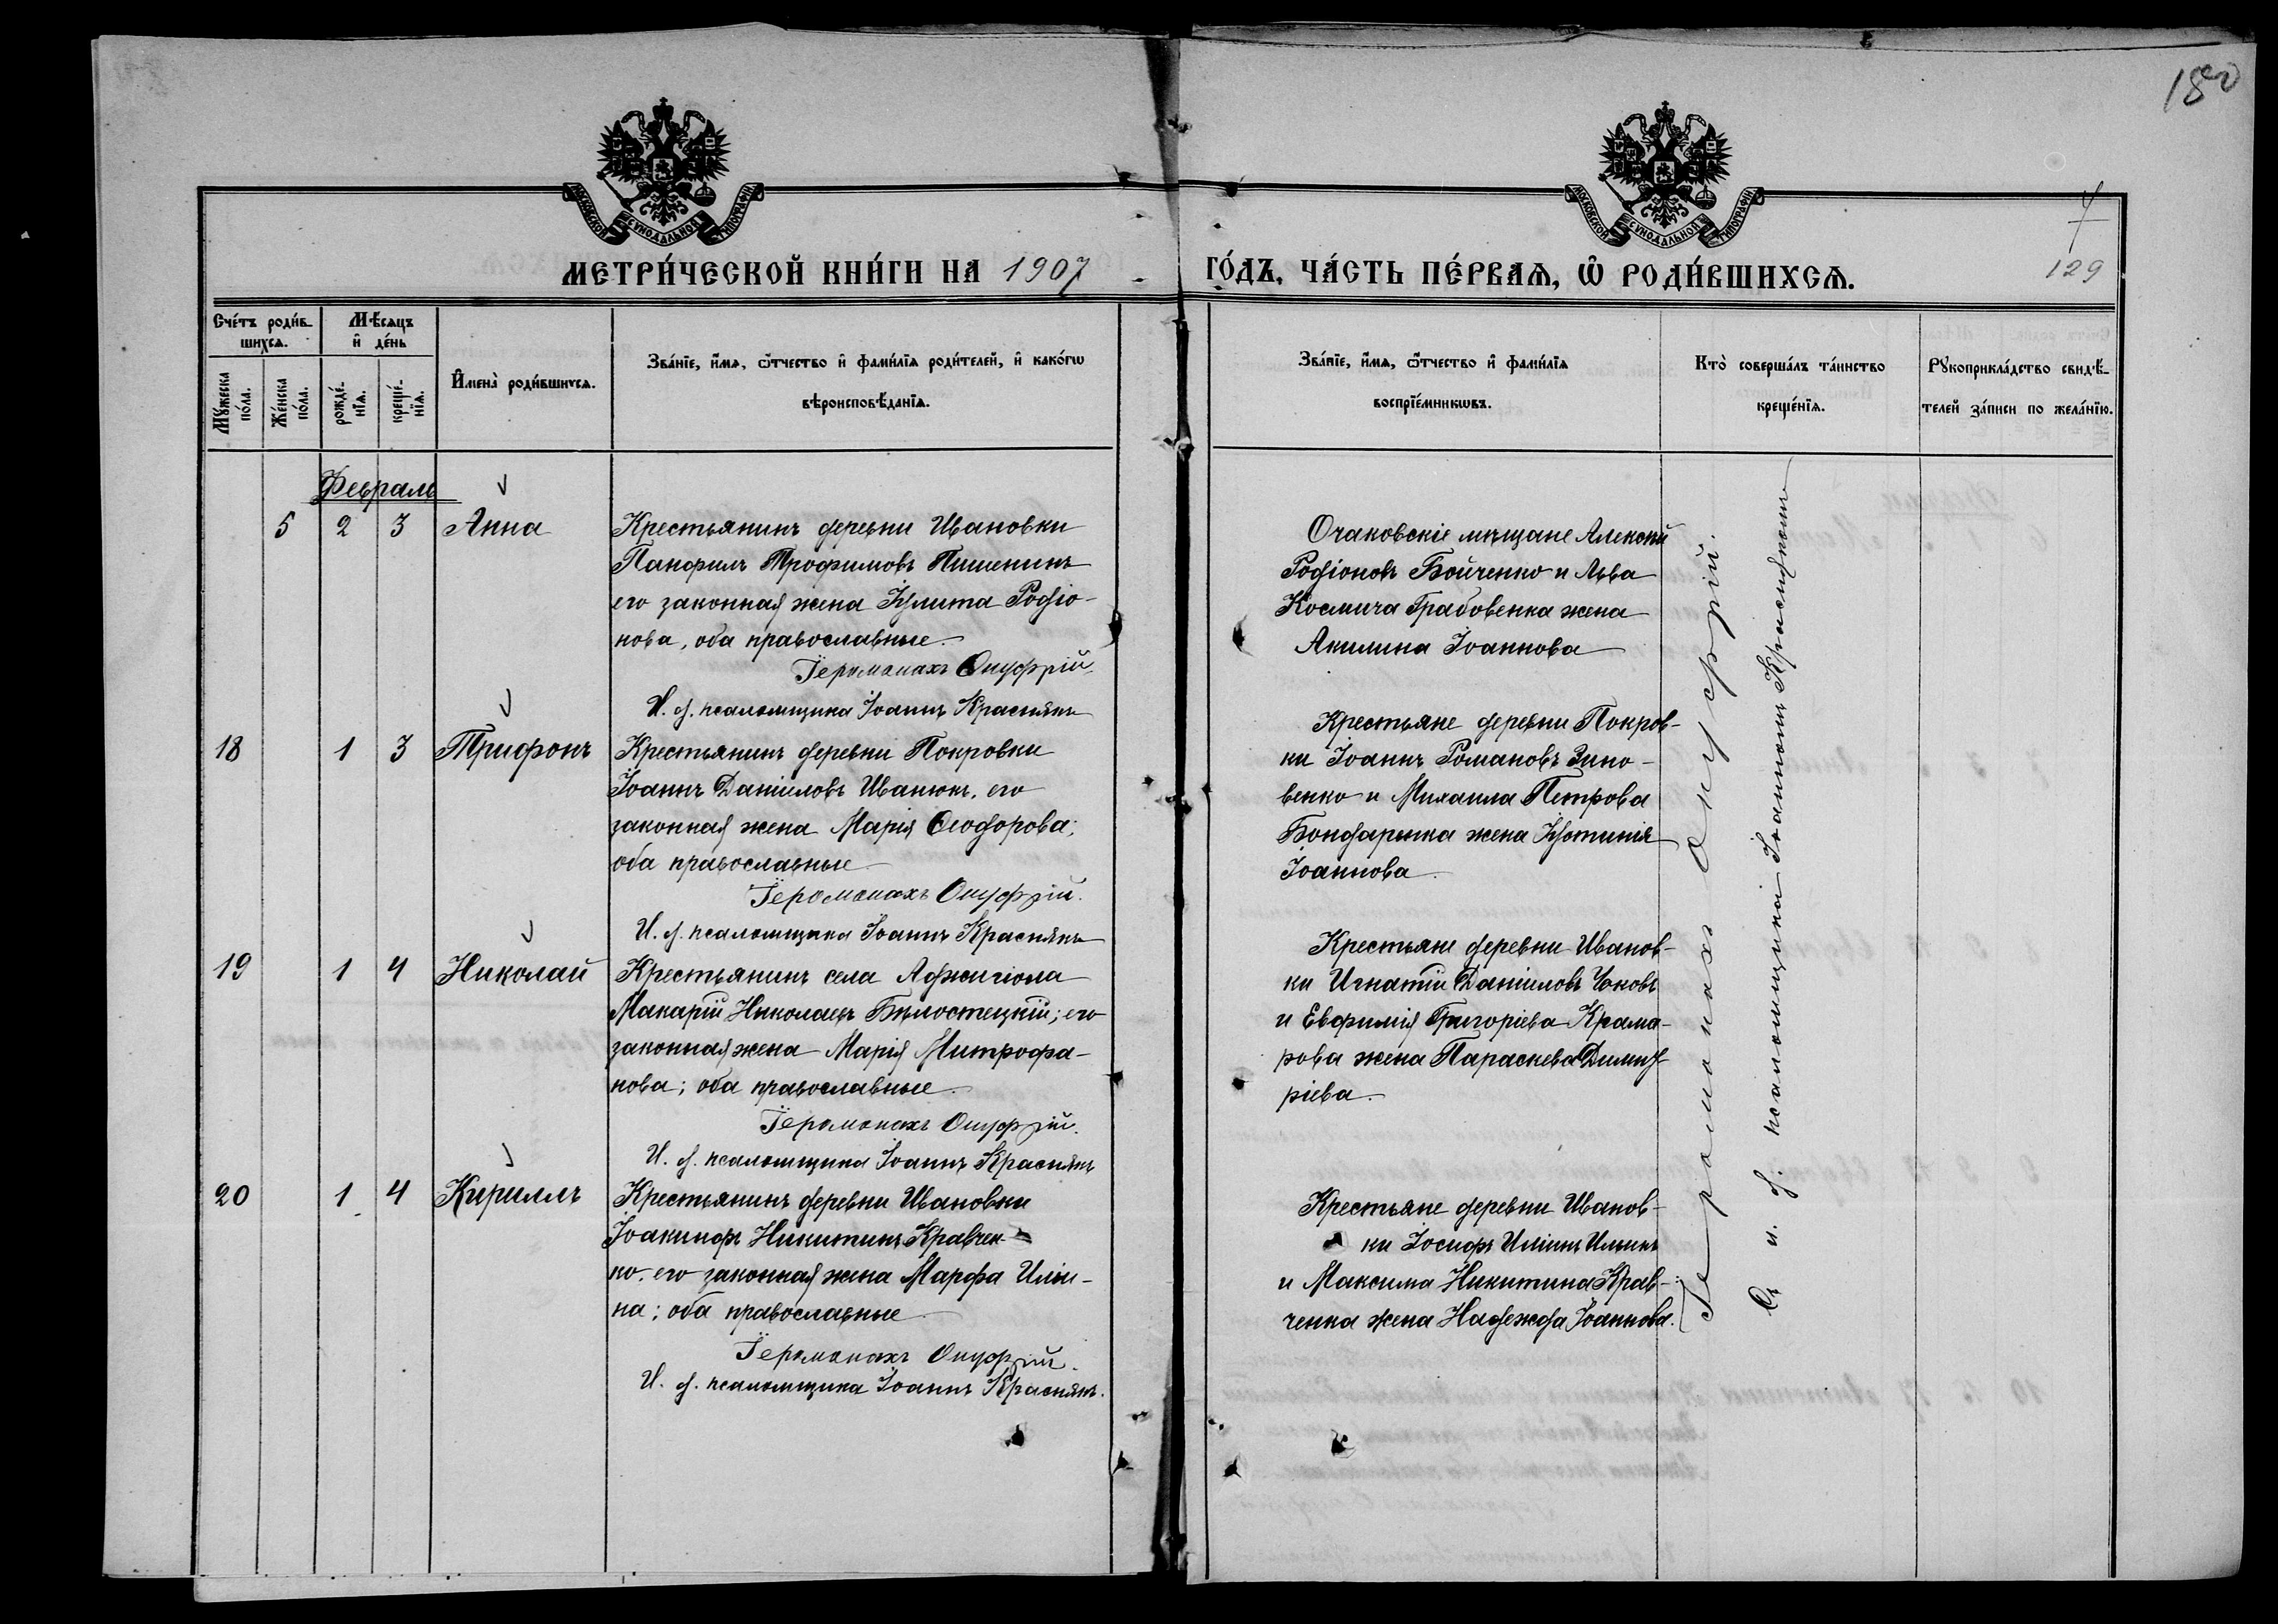 180
МОСКОВСКОЙ СѴНОДАЛЬНОЙ ТИПОГРАФІИ
МОСКОВСКОЙ СѴНОДАЛЬНОЙ ТИПОГРАФІИ
4
129
МЕТРИ́ЧЕСКОЙ КНИ́ГИ НА 1907 ГО́ДЪ, ЧА́СТЬ ПЕ́РВАѦ, Ѡ҆ РОДИ́ВШИХСѦ.
Сче́тъ роди́в-
шихсѧ.
Мꙋ́жеска
по́ла.
Же́нска
по́ла.
Мѣ́сѧцъ
и҆ де́нь
рожде́-
нїѧ.
креще́-
нїѧ.
И҆мена̀ роди́вшихсѧ.
Зва́нїе, и҆́мѧ, ѻ҆́тчество и҆ фами́лїѧ роди́телей, и҆ како́гѡ
вѣроисповѣ́данїѧ.
Зва́нїе, и҆́мѧ, ѻ҆́тчество и҆ фами́лїѧ
воспрїе́мникѡвъ.
Кто̀ соверша́лъ та́инство
креще́нїѧ.
Рꙋкоприкла́дство свидѣ́-
телей за́писи по жела́нїю.
Февраль
5 2 3 Анна
Крестьянинъ деревни Ивановки
Панфилъ Трофимовъ Пишенинъ
его законная жена Іулита Родіо-
нова, оба православные
Іеромонахъ Онуфрій.
И. д. псаломщика Іоаннъ Краснякъ
Очаковскіе мѣщане Алексѣй
Родіоновъ Бойченко и Льва
Космича Грабовенка жена
Акилина Іоаннова
18 1 3 Трифонъ
Крестьянинъ деревни Покровки
Іоаннъ Даніиловъ Иванюкъ, его
законная жена Марія Ѳеодорова;
оба православные
Іеромонахъ Онуфрій.
И. д. псаломщика Іоаннъ Краснякъ
Крестьяне деревни Покров-
ки Іоаннъ Романовъ Зино-
венко и Михаила Петрова
Бондарынка жена Іустинія
Іоаннова
19 1 4 Николай
Крестьянинъ села Аджигіола
Макарій Николаевъ Бѣлостецкій; его
законная жена Марія Митрофа-
нова; оба православные
Іеромонахъ Онуфрій.
И. д. псаломщика Іоаннъ Краснякъ
Крестьяне деревни Иванов-
ки Игнатій Даніиловъ
и Евфимія Григоріева Крама-
рова жена Параскева Димит-
ріева.
20 1 4 Кириллъ
Крестьянинъ деревни Ивановки
Іоакинфъ Никитинъ Кравчен-
ко, его законная жена Марфа Иліи-
на; оба православные
Іеромонахъ Онуфрій.
И. д. псаломщика Іоаннъ Краснякъ.
Крестьяне деревни Иванов-
ки Іосифъ Иліинъ Ильинъ
и Максима Никитина Крав-
ченка жена Надежда Іоаннова.
Іеромонахъ Онуфрій.
Съ и. д. псаломщика Іоанномъ Краснякомъ